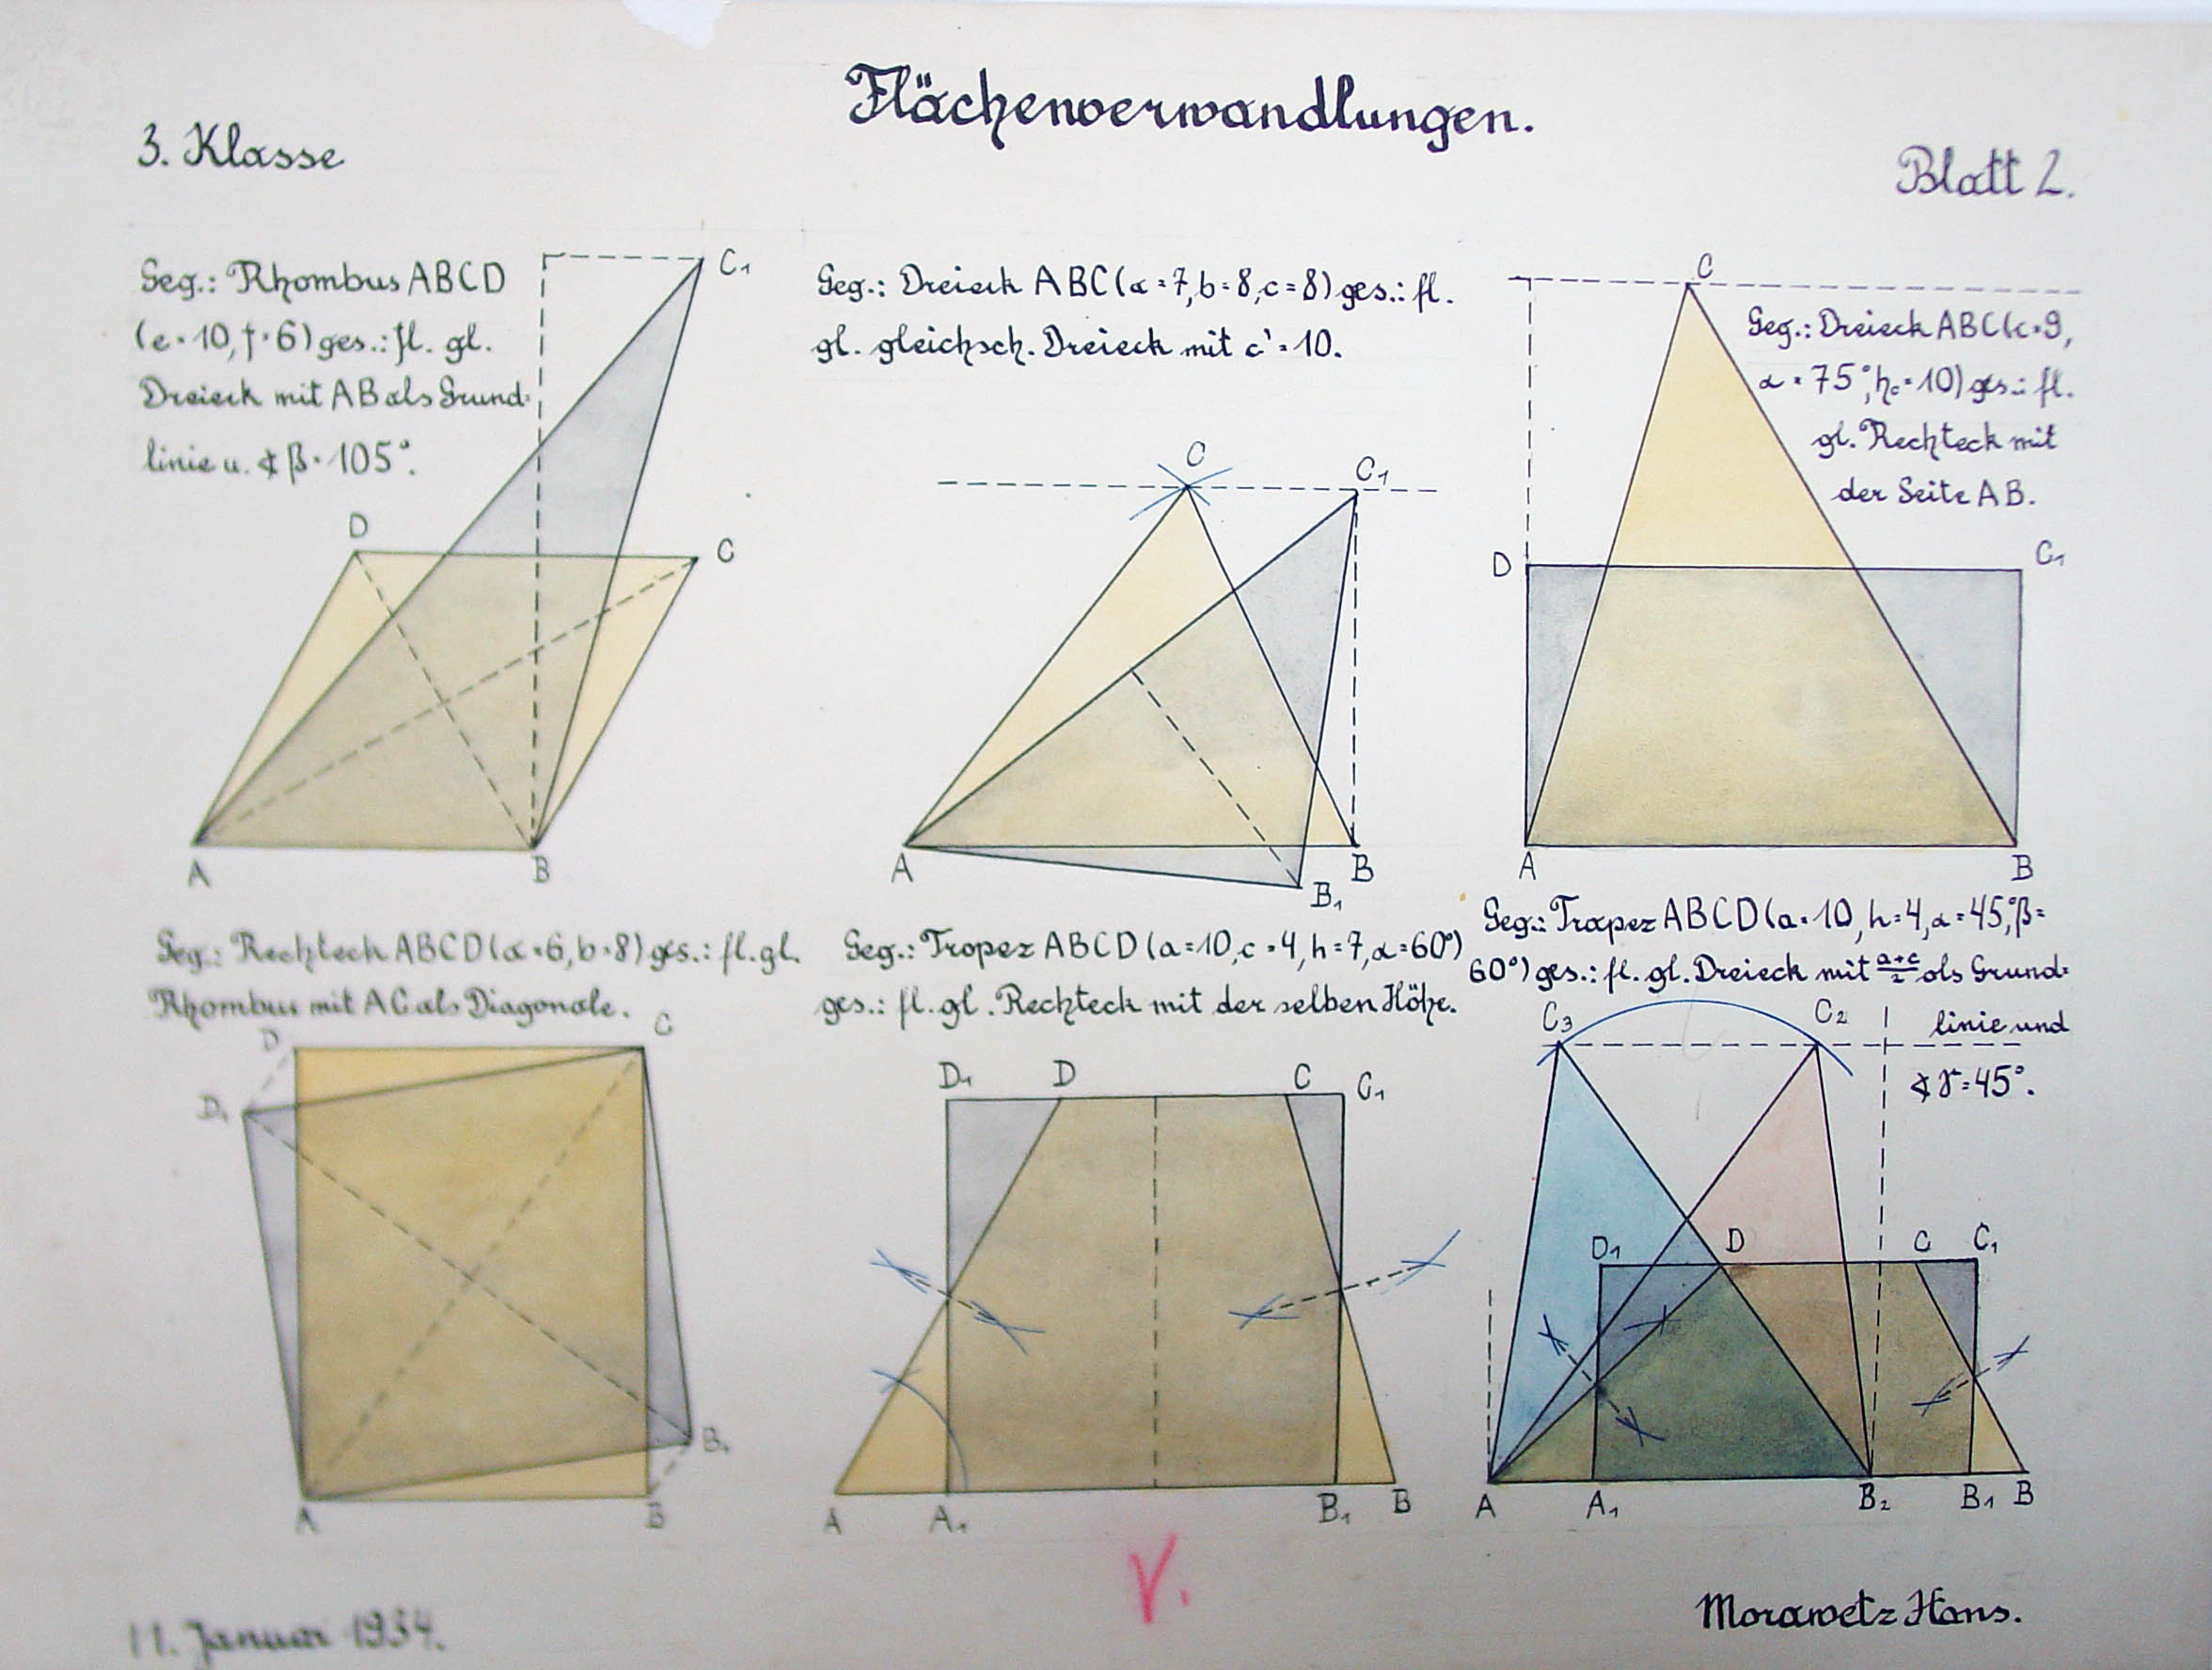 Flächenverwandlungen.
3. Klasse
Blatt 2.
Geg.: Rhombus ABCD
(e=10, f=6) ges.: fl. gl.
Dreieck mit AB als Grund=
linie u. ∢ β=105°.
C₁
D
C
A
B
Geg.: Dreieck ABC (a=7, b=8, c=8) ges.: fl.
gl. gleichsch. Dreieck mit c'=10.
C
C₁
A
B
B₁
C
Geg.: Dreieck ABC (c=9,
α=75°, hc=10) ges.: fl.
gl. Rechteck mit
der Seite AB.
D
C₁
A
B
Geg.: Rechteck ABCD (a=6, b=8) ges.: fl. gl.
Rhombus mit AC als Diagonale.
D
C
D₁
B₁
A
B
Geg.: Trapez ABCD (a=10, c=4, h=7, α=60°)
ges.: fl. gl. Rechteck mit der selben Höhe.
D₁ D C C₁
A A₁ B₁ B
Geg.: Trapez ABCD (a=10, h=4, α=45°, β=
60°) ges.: fl. gl. Dreieck mit a+c/2 als Grund=
linie und
∢ γ=45°.
C₃ C₂
D₁ D C C₁
A A₁ B₂ B₁ B
V.
11. Januar 1934.
Morawetz Hans.